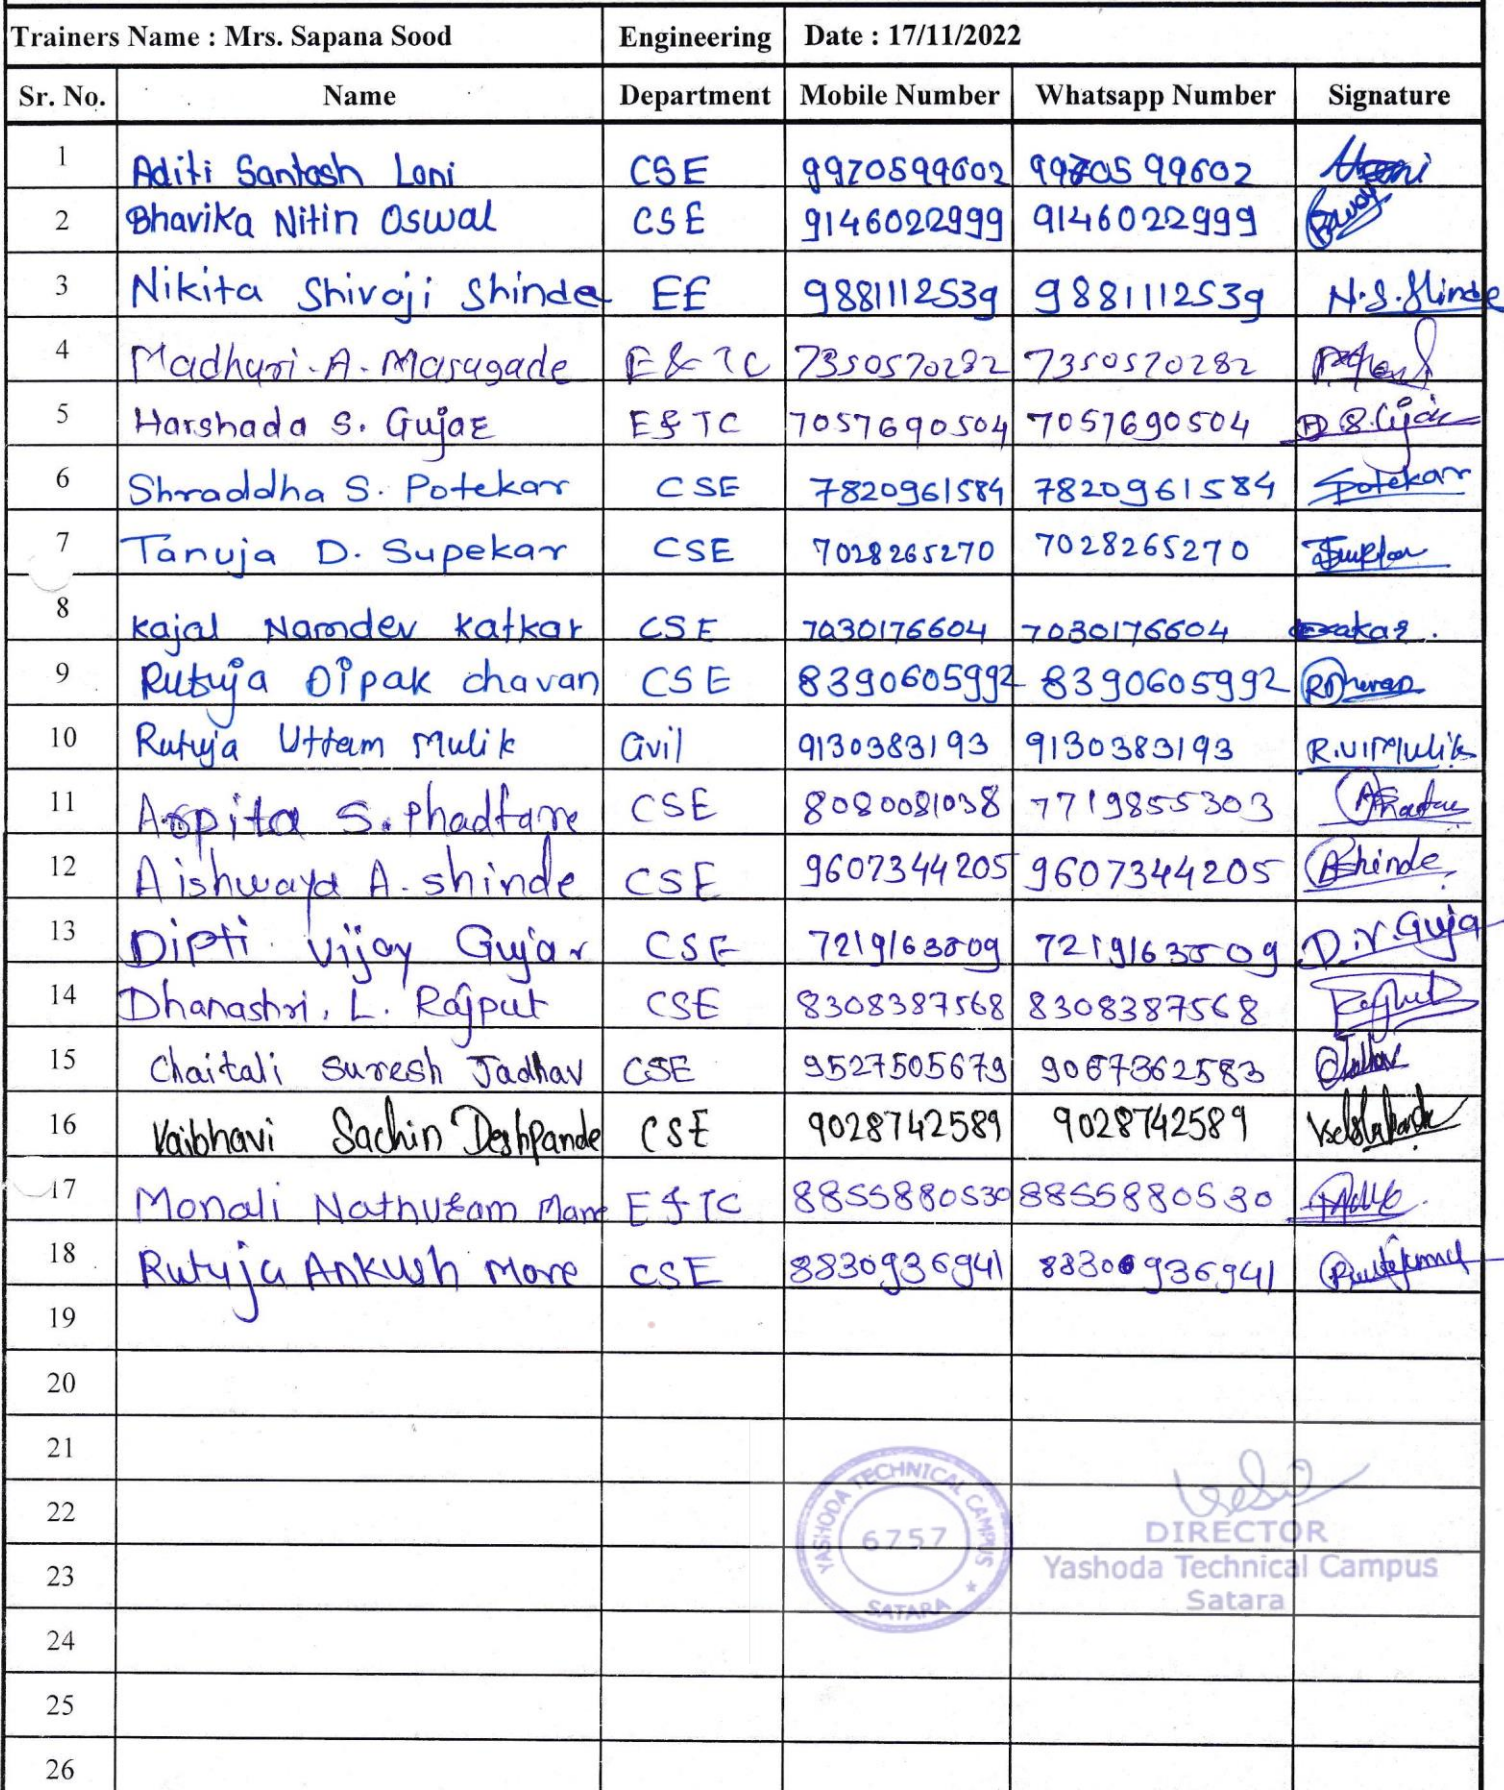 Trainers Name : Mrs. Sapana Sood Engineering Date : 17/11/2022
Sr. No. Name Department Mobile Number Whatsapp Number Signature
1 Aditi Santosh Loni CSE 9970599602 9970599602
2 Bhavika Nitin Oswal CSE 9146022999 9146022999
3 Nikita Shivaji Shinde EE 9881112539 9881112539 N.S.Shinde
4 Madhuri.A.Masugade E&TC 7350570282 7350570282
5 Harshada S. Gujar E&TC 7057690504 7057690504
6 Shraddha S. Potekar CSE 7820961584 7820961584 Spotekar
7 Tanuja D. Supekar CSE 7028265270 7028265270
8 Kajal Namdev Katkar CSE 7030176604 7030176604
9 Rutuja Dipak chavan CSE 8390605992 8390605992
10 Rutuja Uttam Mulik Civil 9130383193 9130383193 R.U.Mulik
11 Arpita S. Phadtare CSE 8080081038 7719855303
12 Aishwaya A. shinde CSE 9607344205 9607344205 AShinde
13 Dipti Vijay Gujar CSE 7219163809 7219163809 D.V.Guja
14 Dhanashri. L. Rajput CSE 8308387568 8308387568
15 Chaitali Suresh Jadhav CSE 9527505679 9067362583
16 Vaibhavi Sachin Deshpande CSE 9028742589 9028742589
17 Monali Nathuram Mane E&TC 8855880530 8855880530
18 Rutuja Ankush More CSE 8830936941 8830936941
19
20
21
22
23
24
25
26
YASHODA TECHNICAL CAMPUS
6757
SATARA
DIRECTOR
Yashoda Technical Campus
Satara